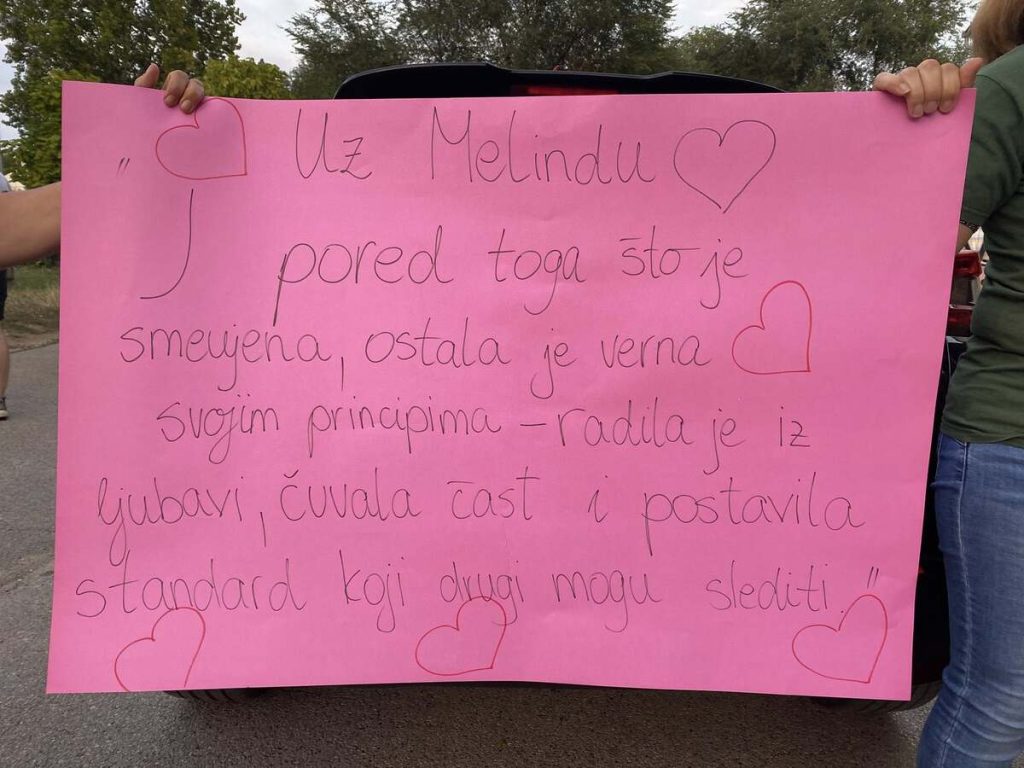 " Uz Melindu
I pored toga što je
smenjena, ostala je verna
svojim principima - radila je iz
ljubavi, čuvala čast i postavila
standard koji drugi mogu slediti."